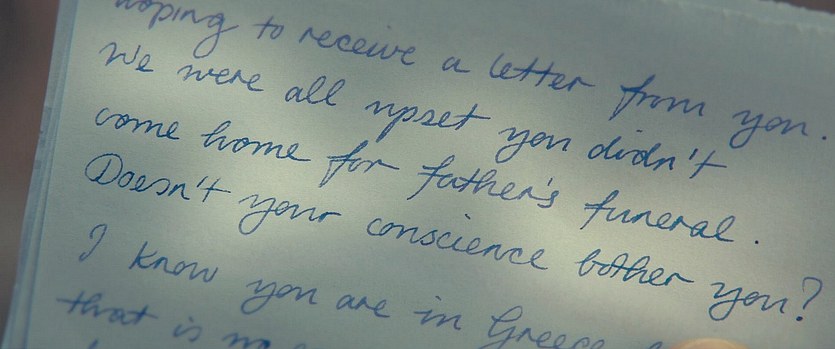 hoping to receive a letter from you.
We were all upset you didn't
come home for father's funeral.
Doesn't your conscience bother you?
I know you are in Greece
that is